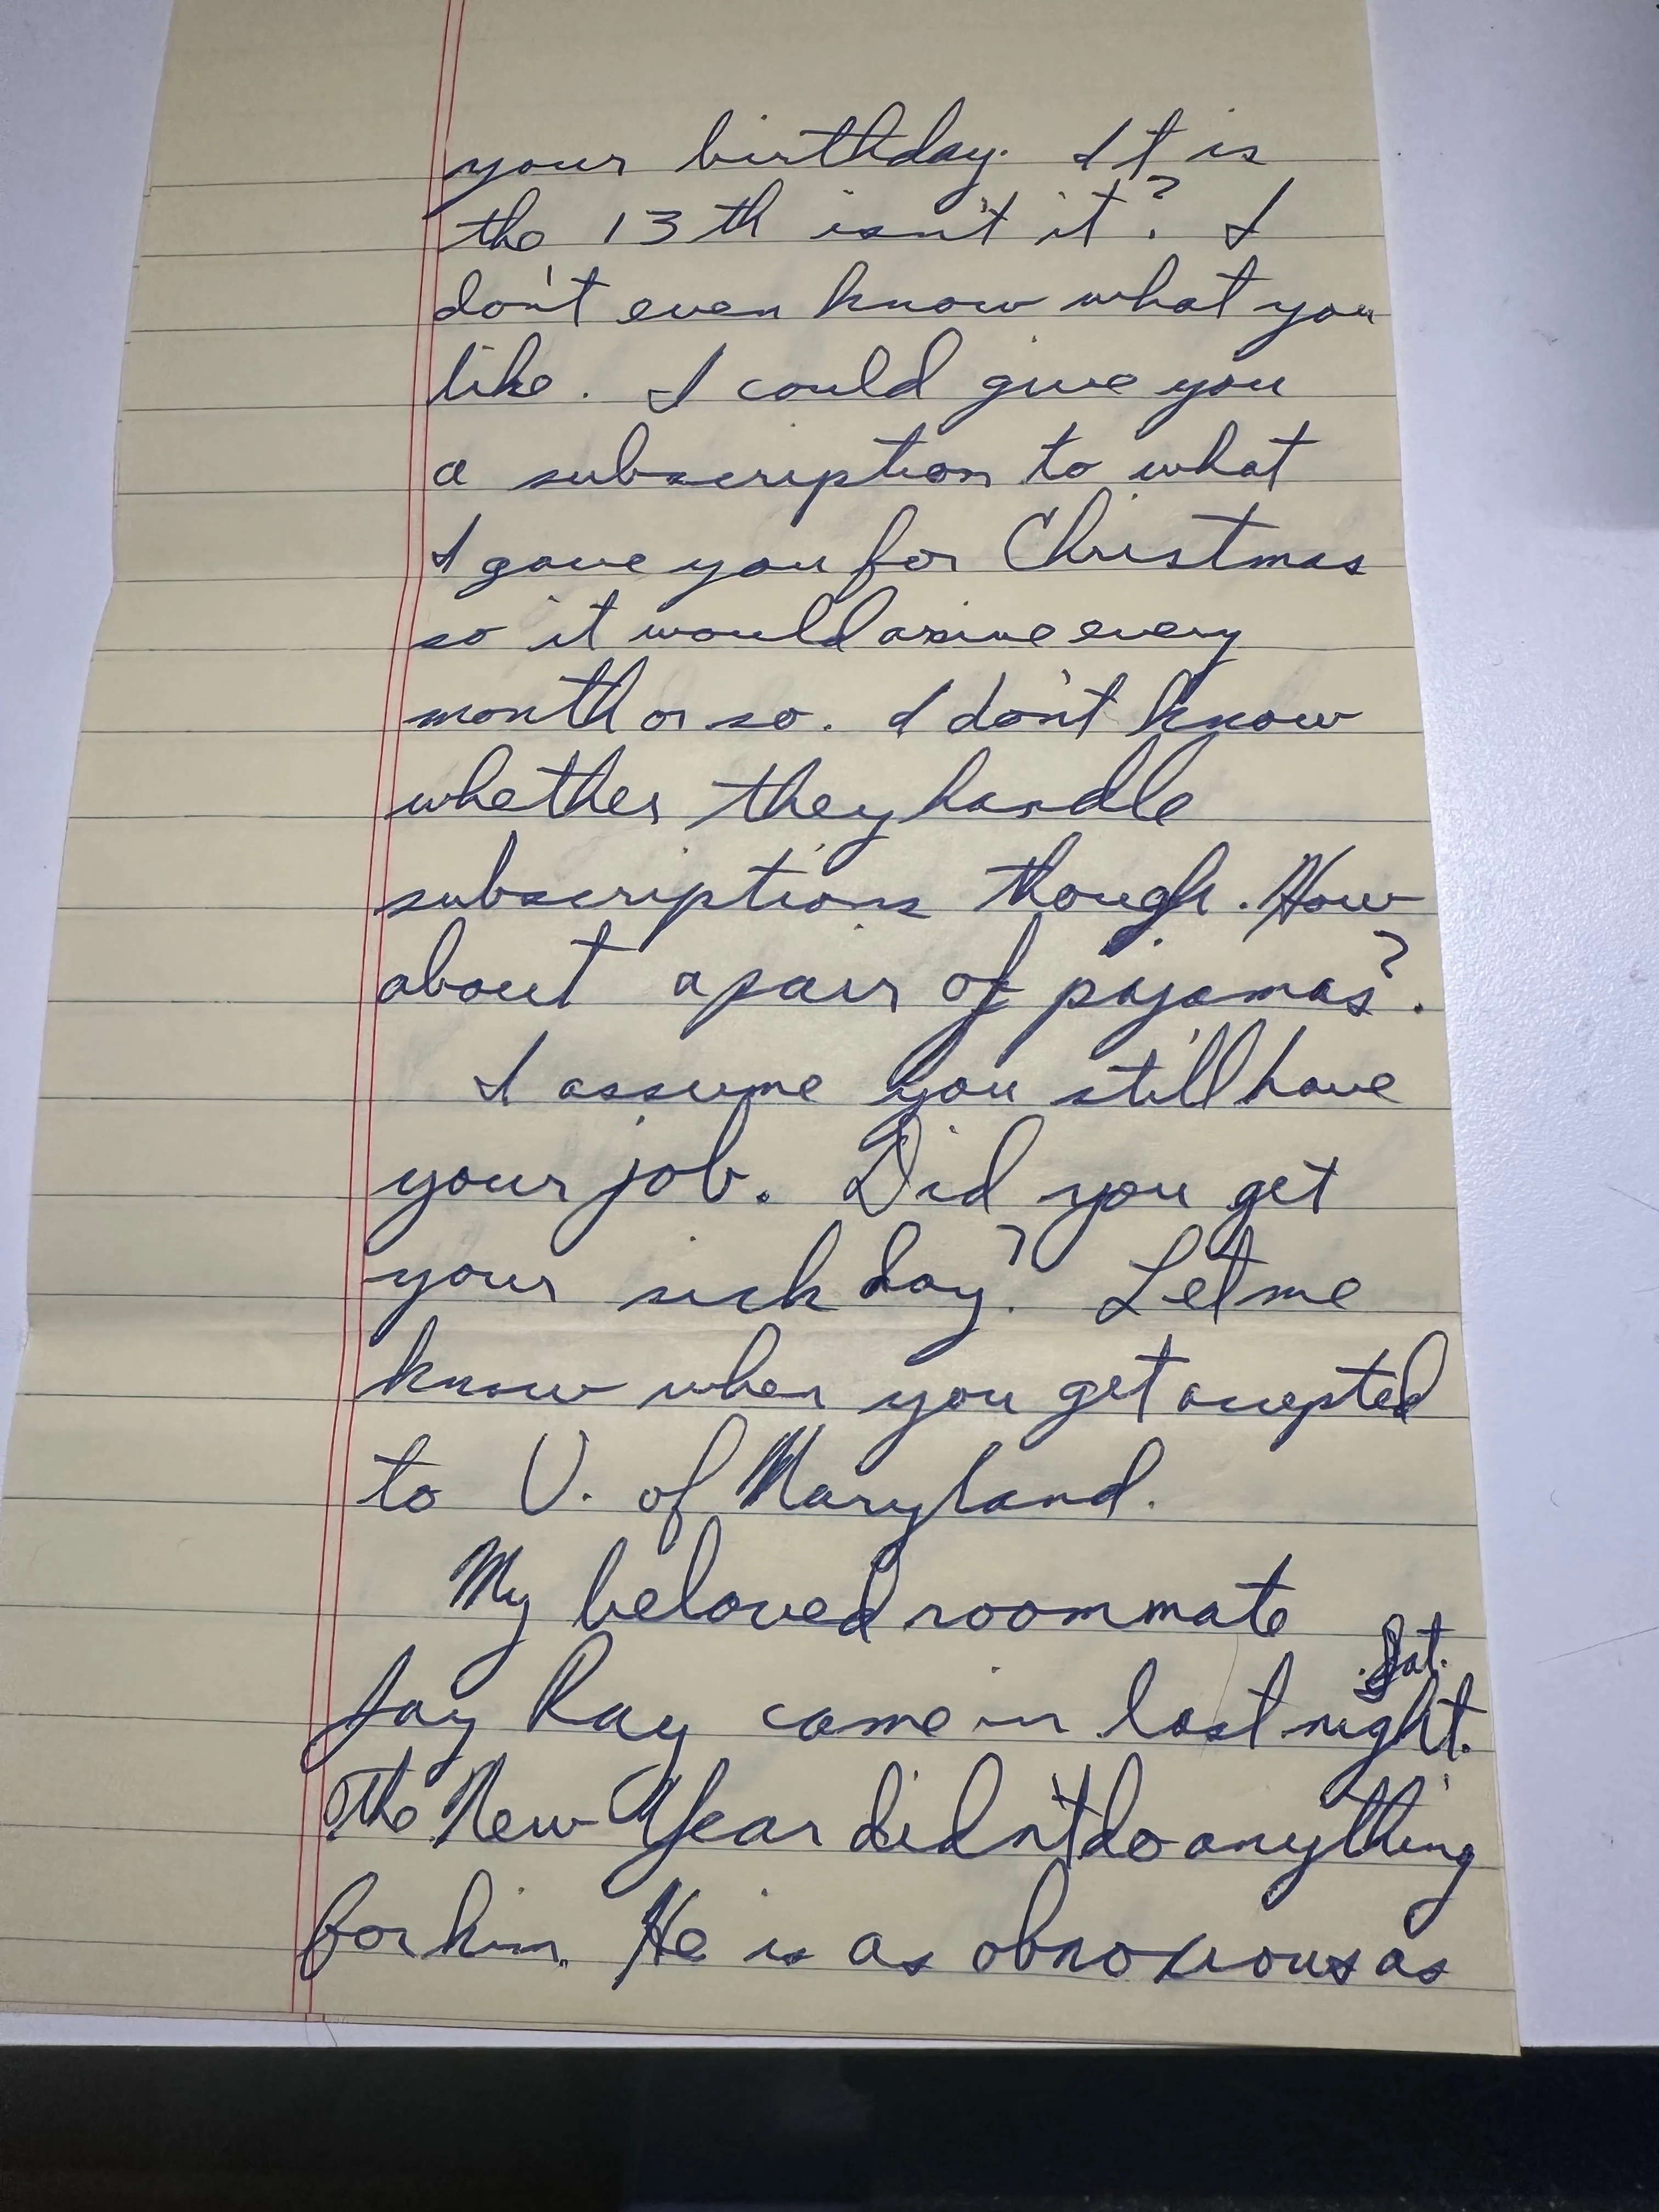 your birthday. It is
the 13th isn't it? I
don't even know what you
like. I could give you
a subscription to what
I gave you for Christmas
so it would arrive every
month or so. I don't know
whether they handle
subscriptions though. How
about a pair of pajamas?
I assume you still have
your job. Did you get
your sick day? Let me
know when you get accepted
to U. of Maryland.
My beloved roommate
Sat.
Jay Ray came in last night.
The New Year didn't do anything
for him. He is as obnoxious as